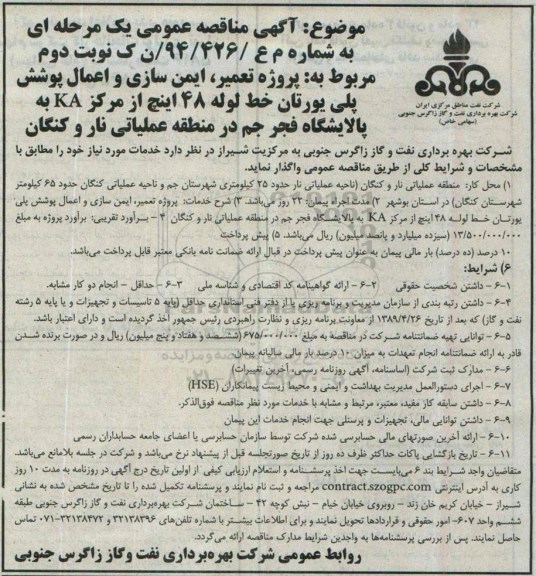 موضوع: آگهی مناقصه عمومی یک مرحله ای
به شماره م ع /۹۴/۴۲۶/ن ک نوبت دوم
مربوط به: پروژه تعمیر، ایمن سازی و اعمال پوشش
پلی یورتان خط لوله ۴۸ اینچ از مرکز KA به
پالایشگاه فجر جم در منطقه عملیاتی نار و کنگان
شرکت نفت مناطق مرکزی ایران
شرکت بهره برداری نفت و گاز زاگرس جنوبی
(سهامی خاص)
شرکت بهره برداری نفت و گاز زاگرس جنوبی به مرکزیت شیراز در نظر دارد خدمات مورد نیاز خود را مطابق با
مشخصات و شرایط کلی از طریق مناقصه عمومی واگذار نماید.
۱) محل کار: منطقه عملیاتی نار و کنگان (ناحیه عملیاتی نار حدود ۲۵ کیلومتری شهرستان جم و ناحیه عملیاتی کنگان حدود ۶۵ کیلومتر
شهرستان کنگان) در استان بوشهر ۲) مدت اجراء پیمان: ۲۲ روز می‌باشد. ۳) شرح خدمات: پروژه تعمیر، ایمن سازی و اعمال پوشش پلی
یورتان خط لوله ۴۸ اینچ از مرکز KA به پالایشگاه فجر جم در منطقه عملیاتی نار و کنگان ۴ – برآورد تقریبی: برآورد پروژه به مبلغ
۱۳/۵۰۰/۰۰۰/۰۰۰ (سیزده میلیارد و پانصد میلیون) ریال می‌باشد. ۵) پیش پرداخت
۱۰ درصد (ده درصد) بار مالی پیمان به عنوان پیش پرداخت در قبال ارائه ضمانت نامه بانکی معتبر قابل پرداخت می‌باشد.
۶) شرایط:
۶-۱ – داشتن شخصیت حقوقی ۶-۲ – ارائه گواهینامه کد اقتصادی و شناسه ملی ۶-۳ – حداقل – انجام دو کار مشابه.
۶-۴ – داشتن رتبه بندی از سازمان مدیریت و برنامه ریزی یا از دفتر فنی استانداری حداقل (پایه ۵ تاسیسات و تجهیزات و یا پایه ۵ رشته
نفت و گاز) که بعد از تاریخ ۱۳۸۹/۴/۲۶ از معاونت برنامه ریزی و نظارت راهبردی رئیس جمهور أخذ گردیده است و دارای اعتبار باشد.
۶-۵ – توانایی تهیه ضمانتنامه شرکت در مناقصه به مبلغ ۶۷۵/۰۰۰/۰۰۰ (ششصد و هفتاد و پنج میلیون) ریال و در صورت برنده شدن
قادر به ارائه ضمانتنامه انجام تعهدات به میزان ۱۰ درصد بار مالی سالیانه پیمان.
۶-۶ – مدارک ثبت شرکت (اساسنامه، آگهی روزنامه رسمی، آخرین تغییرات)
۶-۷ – اجرای دستورالعمل مدیریت بهداشت و ایمنی و محیط زیست پیمانکاران (HSE)
۶-۸ – داشتن سابقه کار مفید، معتبر، مرتبط و مشابه با خدمات مورد نظر مناقصه فوق‌الذکر.
۶-۹ – داشتن توانایی مالی، تجهیزات و پرسنلی جهت انجام خدمات این پیمان
۶-۱۰ – ارائه آخرین صورتهای مالی حسابرسی شده شرکت توسط سازمان حسابرسی یا اعضای جامعه حسابداران رسمی
۶-۱۱ – تاریخ بازگشایی پاکات حداکثر ظرف ده روز از تاریخ صورتجلسه قبل از پیشنهاد نرخ می‌باشد و شرکت در جلسه بلامانع می‌باشد.
متقاضیان واجد شرایط بند ۶ می‌بایست جهت اخذ پرسشنامه و استعلام ارزیابی کیفی از اولین تاریخ درج آگهی در روزنامه به مدت ۱۰ روز
کاری به آدرس اینترنتی contract.szogpc.com مراجعه و ثبت نام نمایند و پرسشنامه تکمیل شده را تا تاریخ مشخص شده به نشانی
شیراز – خیابان کریم خان زند – روبروی خیابان خیام – نبش کوچه ۴۲ – ساختمان شرکت بهره‌برداری نفت و گاز زاگرس جنوبی طبقه
ششم واحد ۶۰۷- امور حقوقی و قراردادها تحویل نمایند و برای اطلاعات بیشتر با شماره تلفن‌های ۳۲۱۳۸۳۹۶ و ۳۲۱۳۸۴۷۲-۰۷۱ تماس
حاصل نمایند. پس از بررسی پرسشنامه‌ها به واجدین شرایط مدارک مناقصه ارائه می‌گردد.
روابط عمومی شرکت بهره‌برداری نفت وگاز زاگرس جنوبی